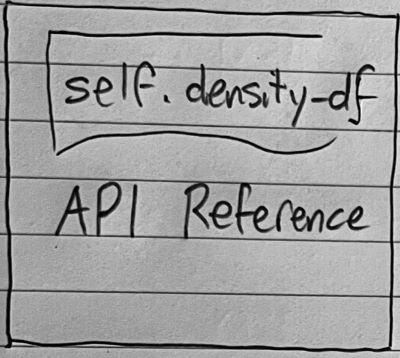 self.density-df
API Reference